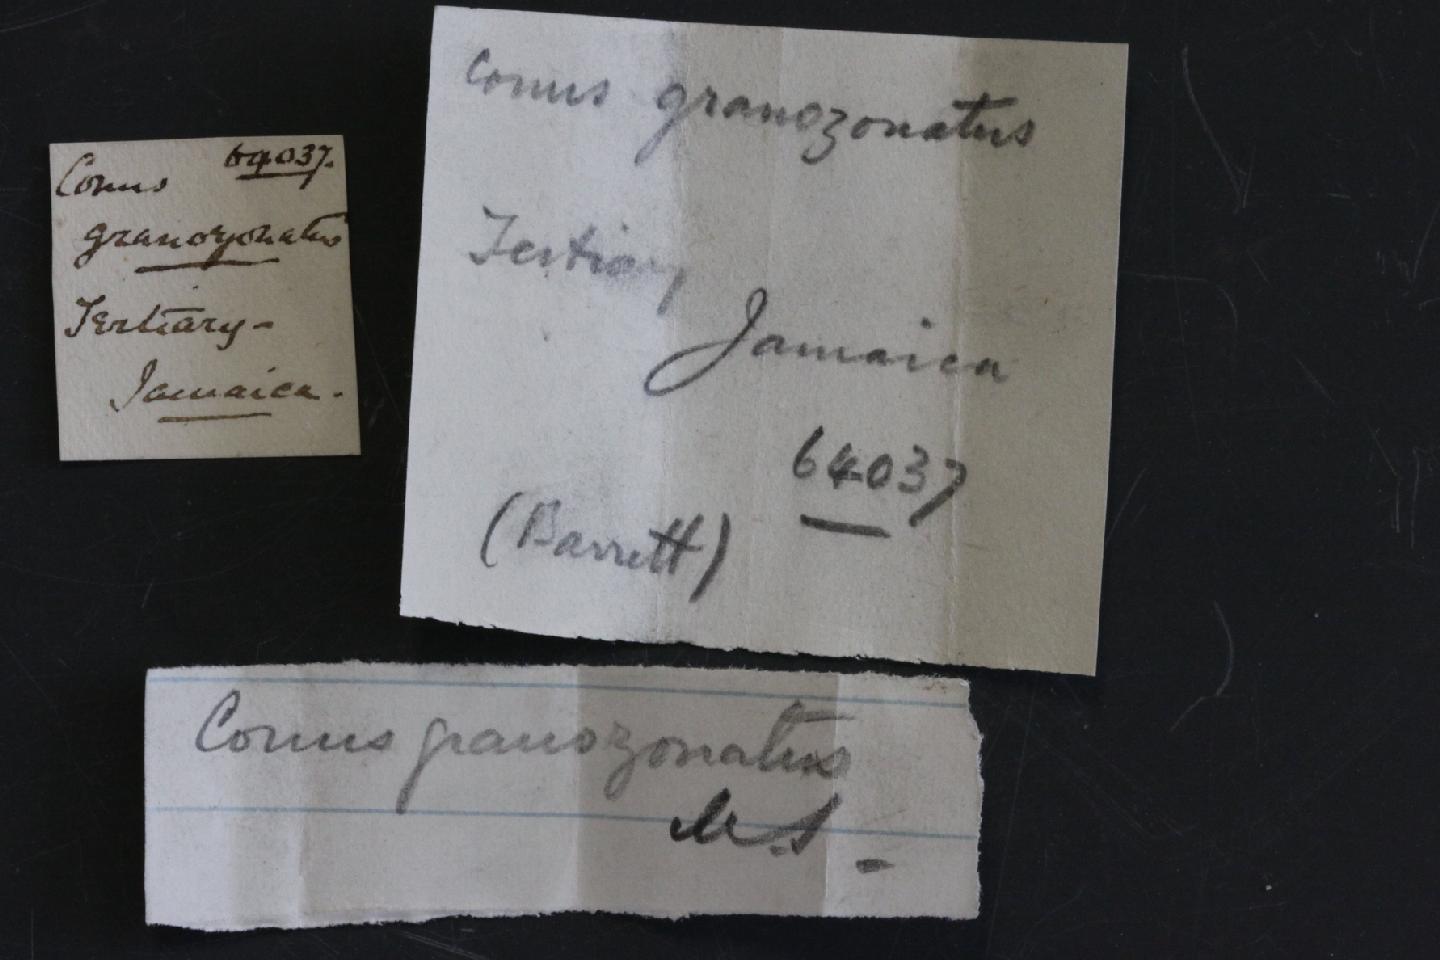 64037.
Conus
granozonatus
Tertiary-
Jamaica.
Conus granozonatus
Tertiary
Jamaica
64037
(Barrett)
Conus granozonatus
M.S-